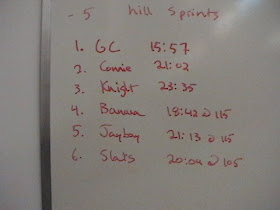 - 5 hill sprints
1. GC 15:57
2. Connie 21:02
3. Knight 23:35
4. Banana 18:42 @ 115
5. Jayboy 21:13 @ 115
6. Slats 20:04 @ 105